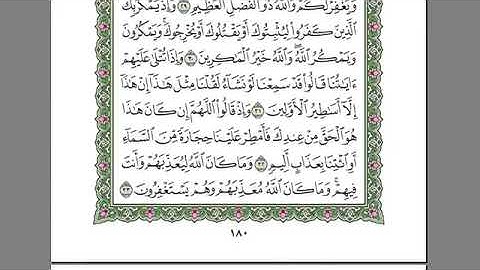 وَيَغْفِرْ لَكُمْ وَاللَّهُ ذُو الْفَضْلِ الْعَظِيمِ ٢٩ وَإِذْ يَمْكُرُ بِكَ
الَّذِينَ كَفَرُوا لِيُثْبِتُوكَ أَوْ يَقْتُلُوكَ أَوْ يُخْرِجُوكَ وَيَمْكُرُونَ
وَيَمْكُرُ اللَّهُ وَاللَّهُ خَيْرُ الْمَاكِرِينَ ٣٠ وَإِذَا تُتْلَى عَلَيْهِمْ
ءَايَاتُنَا قَالُوا قَدْ سَمِعْنَا لَوْ نَشَاءُ لَقُلْنَا مِثْلَ هَٰذَا إِنْ هَٰذَا
إِلَّا أَسَاطِيرُ الْأَوَّلِينَ ٣١ وَإِذْ قَالُوا اللَّهُمَّ إِنْ كَانَ هَٰذَا
هُوَ الْحَقَّ مِنْ عِنْدِكَ فَأَمْطِرْ عَلَيْنَا حِجَارَةً مِنَ السَّمَاءِ
أَوِ ائْتِنَا بِعَذَابٍ أَلِيمٍ ٣٢ وَمَا كَانَ اللَّهُ لِيُعَذِّبَهُمْ وَأَنْتَ
فِيهِمْ وَمَا كَانَ اللَّهُ مُعَذِّبَهُمْ وَهُمْ يَسْتَغْفِرُونَ ٣٣
١٨٠